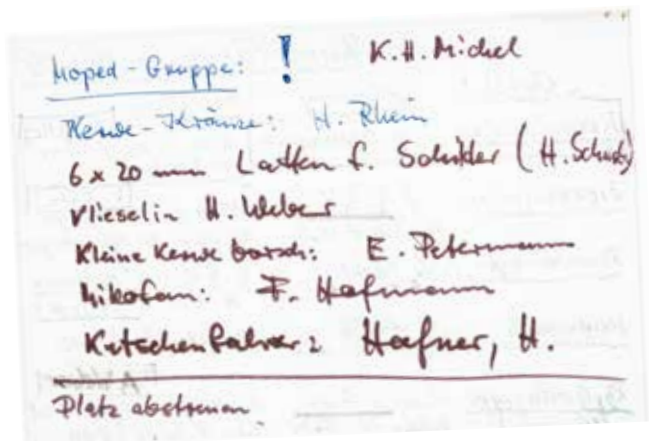 Moped-Gruppe: ! K.H. Michel
Kerwe-Kränze: H. Rhein
6 x 20 mm Latten f. Schilder (H. Schutz)
Vlieselin H. Weber
Kleine Kerweborsch: E. Petermann
Mikofon: F. Hafmann
Kutschenfahrer: Hafner, H.
Platz abstreuen